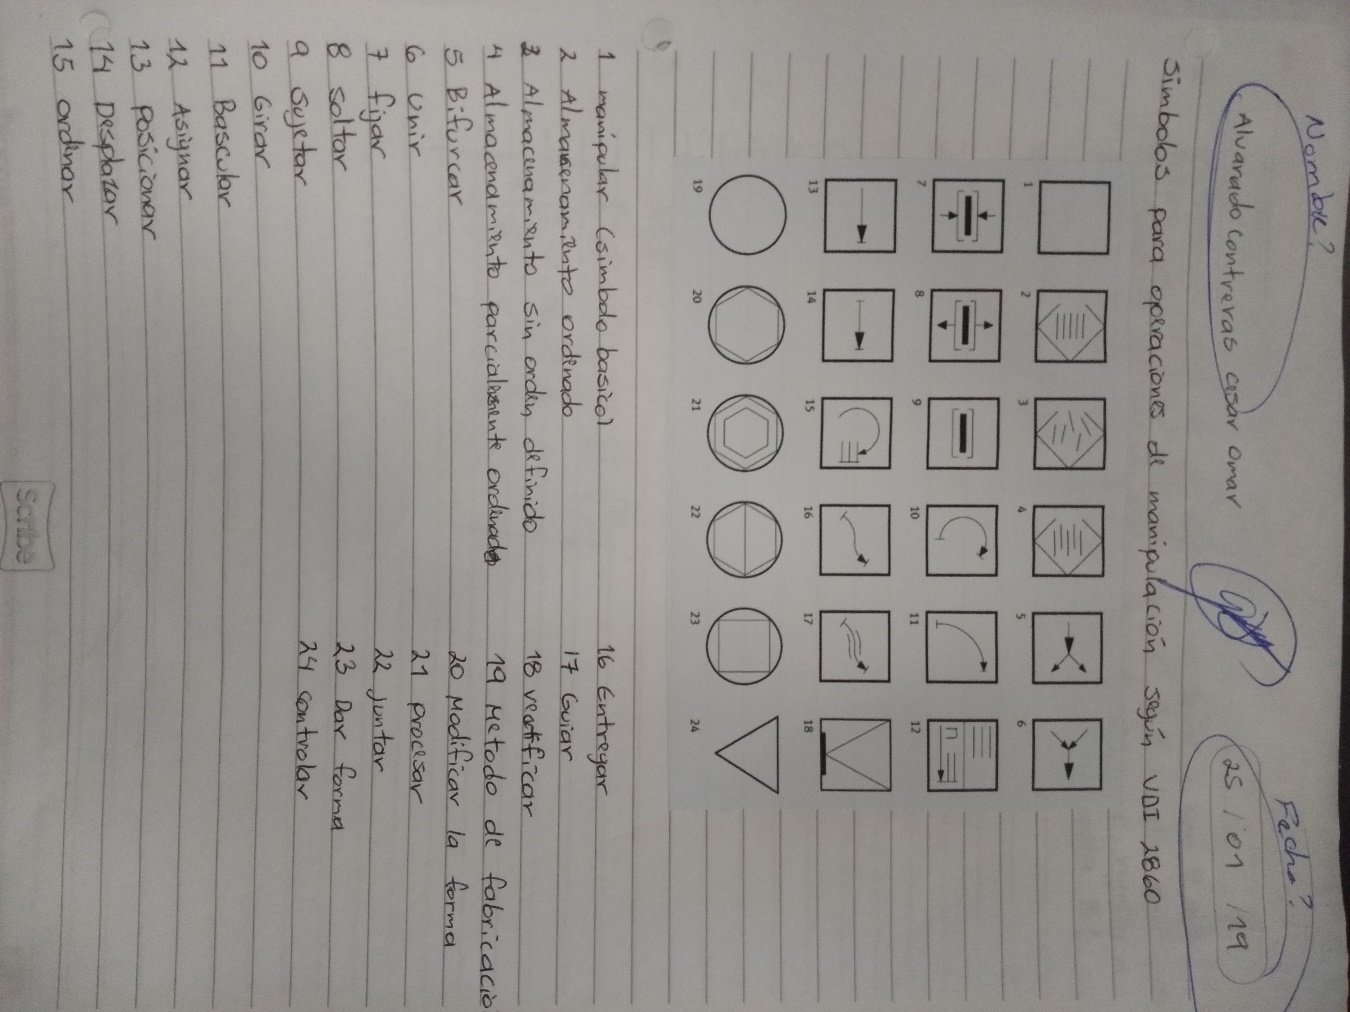 Nombre?
Fecha?
Alvarado Contreras cesar omar
25 / 01 / 19
Simbolos para operaciones de manipulación según VDI 2860
1 2 3 4 5 6
7 8 9 10 11 12
13 14 15 16 17 18
19 20 21 22 23 24
1 manipular (simbolo basico)
2 Almacenamiento ordenado
3 Almacenamiento sin orden definido
4 Almacenamiento parcialmente ordenado
5 Bifurcar
6 unir
7 fijar
8 soltar
9 sujetar
10 Girar
11 Bascular
12 Asignar
13 posicionar
14 Desplazar
15 ordenar
16 Entregar
17 Guiar
18 verificar
19 Metodo de fabricacio
20 Modificar la forma
21 procesar
22 juntar
23 Dar forma
24 controlar
Scribe